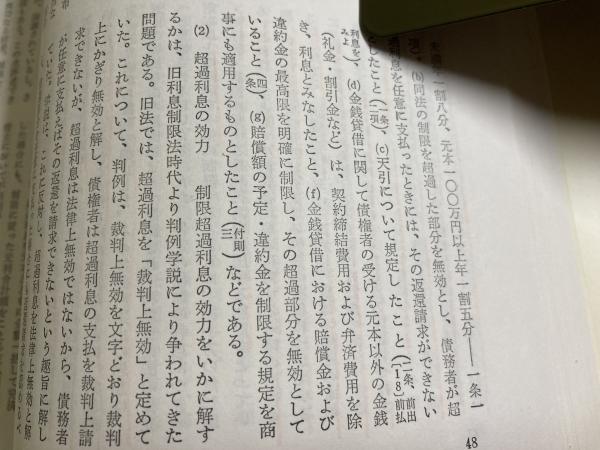 48
未満年一割八分、元本一〇〇万円以上年一割五分――一条一
項)、(b)同法の制限を超過した部分を無効とし、債務者が超
過利息を任意に支払ったときには、その返還請求ができない
としたこと(一条二項)、(c)天引について規定したこと(二条、前出[18]前払
利息をみよ)、(d)金銭貸借に関して債権者の受ける元本以外の金銭
(礼金・割引金など)は、契約締結費用および弁済費用を除
き、利息とみなしたこと、(f)金銭貸借における賠償金および
違約金の最高限を明確に制限し、その超過部分を無効として
いること(四条)、(g)賠償額の予定・違約金を制限する規定を商
事にも適用するものとしたこと(付則三)などである。
(2) 超過利息の効力 制限超過利息の効力をいかに解す
るかは、旧利息制限法時代より判例学説により争われてきた
問題である。旧法では、超過利息を「裁判上無効」と定めて
いた。これについて、判例は、裁判上無効を文字どおり裁判
上にかぎり無効と解し、債権者は超過利息の支払を裁判上請
求できないが、超過利息は法律上無効ではないから、債務者
が任意に支払えばその返還を請求できないという趣旨に解し
ていた。学説は、これに反対し、超過利息を法律上無効と解